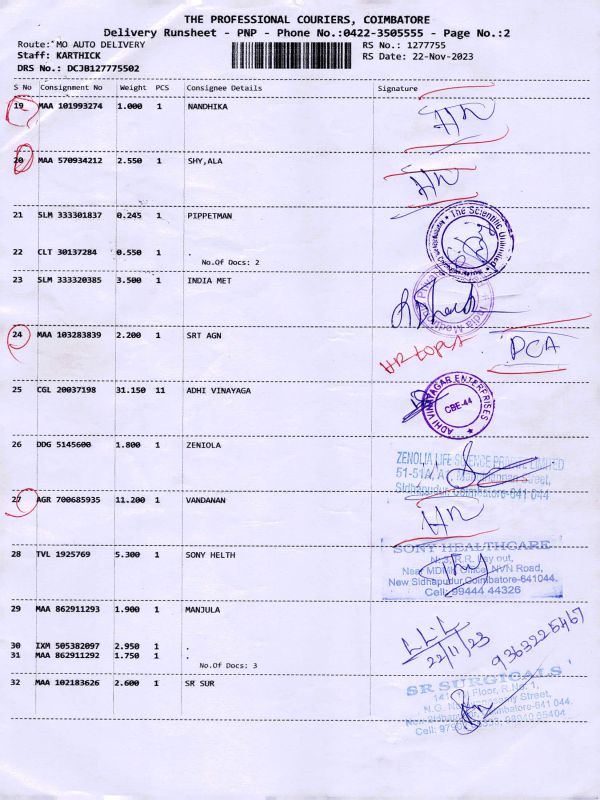 THE PROFESSIONAL COURIERS, COIMBATORE
Delivery Runsheet - PNP - Phone No.:0422-3505555 - Page No.:2
Route: MO AUTO DELIVERY RS No.: 1277755
Staff: KARTHICK RS Date: 22-Nov-2023
DRS No.: DCJB127775502
S No Consignment No Weight PCS Consignee Details Signature
19 MAA 101993274 1.000 1 NANDHIKA
20 MAA 570934212 2.550 1 SHY,ALA
21 SLM 333301837 0.245 1 PIPPETMAN
The Scientific Unlimited
22 CLT 30137284 0.550 1 .
No.Of Docs: 2
23 SLM 333320385 3.500 1 INDIA MET
24 MAA 103283839 2.200 1 SRT AGN
DCA
25 CGL 20037198 31.150 11 ADHI VINAYAGA
ADHI VINAYAGAR ENTERPRISES
CBE-44
26 DDG 5145600 1.800 1 ZENIOLA
ZENOLIA LIFE SCIENCE PRIVATE LIMITED
51-51A, Street,
Sidhapudur, Coimbatore-641 044
27 AGR 700685935 11.200 1 VANDANAN
28 TVL 1925769 5.300 1 SONY HELTH
SONY HEALTHCARE
Lay out,
Near Office, NVN Road,
New Sidhapudur, Coimbatore-641044.
Cell: 99444 44326
29 MAA 862911293 1.900 1 MANJULA
22/11/23
9363225467
30 IXM 505382097 2.950 1 .
31 MAA 862911292 1.750 1 .
No.Of Docs: 3
32 MAA 102183626 2.600 1 SR SUR
SR SURGICALS
Floor, R.No. 1,
N.G. Street,
New Coimbatore-641 044.
Cell: